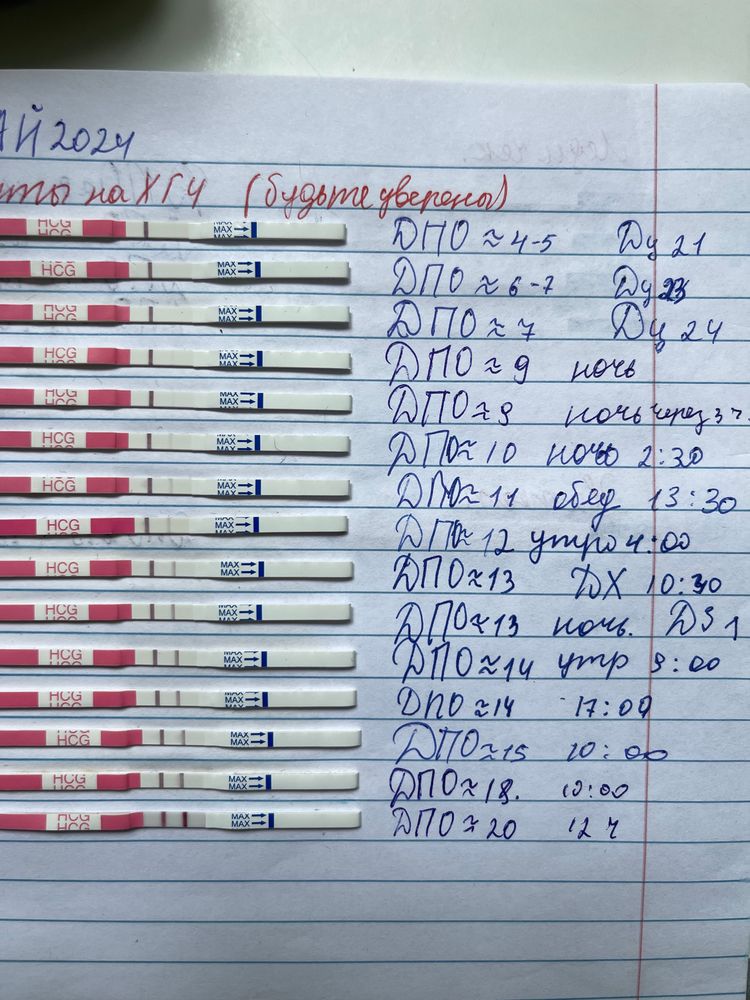 АЙ 2024
ты на ХГЧ (будьте уверены)
HCG HCG MAX MAX ДПО ≈ 4-5 Дц 21
HCG MAX MAX ДПО ≈ 6-7 Дц 23
HCG HCG MAX MAX ДПО ≈ 7 Дц 24
HCG MAX MAX ДПО ≈ 9 ночь
HCG HCG MAX MAX ДПО ≈ 9 ночь через 3 ч.
HCG MAX MAX ДПО ≈ 10 ночь 2:30
HCG HCG MAX MAX ДПО ≈ 11 обед 13:30
HCG MAX MAX ДПО ≈ 12 утро 4:00
HCG MAX MAX ДПО ≈ 13 ДХ 10:30
HCG MAX MAX ДПО ≈ 13 ночь.
HCG HCG MAX MAX ДПО ≈ 14 утр 9:00
HCG HCG MAX MAX ДПО ≈ 14 17:00
HCG HCG MAX MAX ДПО ≈ 15 10:00
HCG HCG MAX MAX ДПО ≈ 18. 10:00
HCG HCG MAX MAX ДПО ≈ 20 12 ч